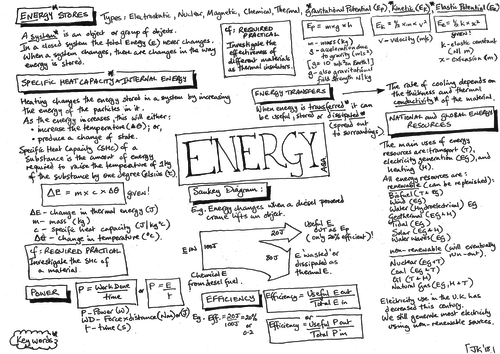 ENERGY STORES
Types: Electrostatic, Nuclear, Magnetic, Chemical, Thermal, Gravitational Potential (Ep), Kinetic (EK), Elastic Potential (Ee)
A system is an object or group of objects.
In a closed system the total Energy (E) never changes.
When a system changes, there are changes in the way
energy is stored.
cf: REQUIRED
PRACTICAL
Investigate the
effectiveness of
different materials
as thermal insulators.
Ep = m x g x h
m - mass (kg)
g - acceleration due
to gravity (m/s²)
[g = 10 m/s² on Earth]
g - also gravitational
field strength N/kg
EK = ½ x m x v²
v - velocity (m/s)
Ee = ½ k x x²
given!
k - elastic constant
(N/m)
x - extension (m)
SPECIFIC HEAT CAPACITY & INTERNAL ENERGY
Heating changes the energy stored in a system by increasing
the energy of the particles in it.
As the energy increases, this will either:
• increase the temperature (Δθ); or,
• produce a change of state.
Specific Heat Capacity (SHC) of a
Substance is the amount of energy
required to raise the temperature of 1kg
of the substance by one degree Celsius (°C)
ΔE = m x c x Δθ given!
ΔE - change in thermal energy (J)
m - mass (kg)
c - specific heat capacity (J/kg°C)
Δθ - change in temperature (°C).
cf: REQUIRED PRACTICAL
Investigate the SHC of
a material.
ENERGY TRANSFERS
When energy is transferred it can
be useful, stored or dissipated
(spread out
to surroundings)
The rate of cooling depends on
the thickness and thermal
conductivity of the material.
ENERGY
Sankey Diagram:
E.g. Energy changes when a diesel powered
crane lifts an object.
E IN
100J
20J
80J
Useful E
OUT as Ep
(only 20% efficient!)
E wasted or
dissipated as
thermal E.
Chemical E
from diesel fuel.
NATIONAL and GLOBAL ENERGY
RESOURCES
The main uses of energy
resources are: transport (T),
electricity generation (Eg), and
Heating (H).
All energy resources are:
renewable (can be replenished):
Biofuel (T + Eg)
Wind (Eg)
Water (Hydroelectric) Eg
Geothermal (Eg + H)
Tidal (Eg)
Solar (Eg + H)
Water waves (Eg)
non-renewable (will eventually
run-out).
Nuclear (Eg + T)
Coal (Eg + T)
Oil (Eg + T)
Natural Gas (Eg, H + T)
Electricity use in the U.K. has
decreased this century.
We still generate most electricity
using non-renewable sources.
POWER
P = Work Done
time
or
P = E
t
P - Power (W)
WD - Force x distance (Nm) or J
t - time (s)
EFFICIENCY
Efficiency = Useful E out
Total E in
Eg. Eff. = 20J = 20%
100J or
0.2
or
Efficiency = Useful P out
Total P in
Key words